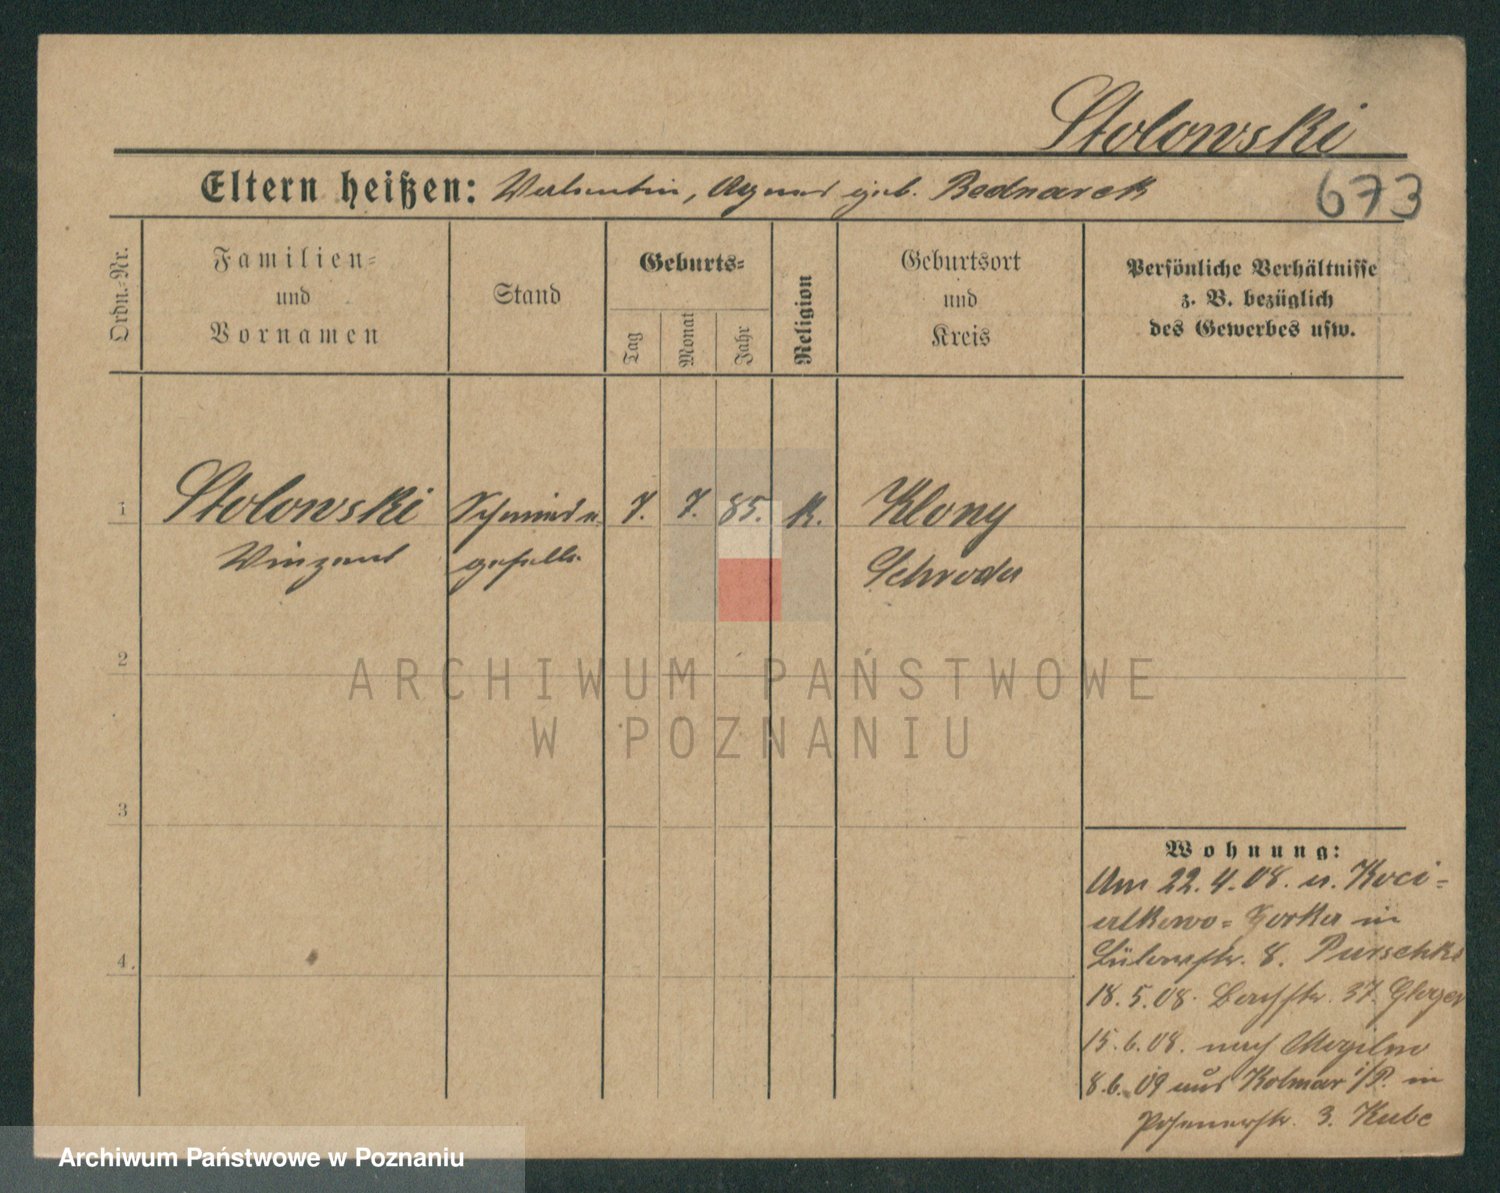 Stolowski
Eltern heißen: Valentin, Agnes geb. Bednarek
673
Ordn.-Nr.
Familien-
und
Vornamen
Stand
Geburts-
Tag
Monat
Jahr
Religion
Geburtsort
und
Kreis
Persönliche Verhältnisse
z. B. bezüglich
des Gewerbes usw.
1 Stolowski Schmiede 7. 7. 85. K. Klony
Vinzent geselle Schroda
2
ARCHIWUM PAŃSTWOWE
W POZNANIU
3
Wohnung:
Am 22.4.08. a. Koci-
alkowo-Gorka in
Bülowstr. 8. Purschke
4.
18.5.08. 37. Glozer
15.6.08. nach Mogilno
8.6.09 aus Kolmar i/P. in
Posenerstr. 3. Kube
Archiwum Państwowe w Poznaniu